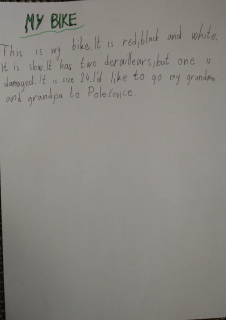 MY BIKE
This is my bike. It is red, black and white.
It is slow. It has two deraillears, but one is
damaged. It is size 24. I'd like to go my grandma
and grandpa to